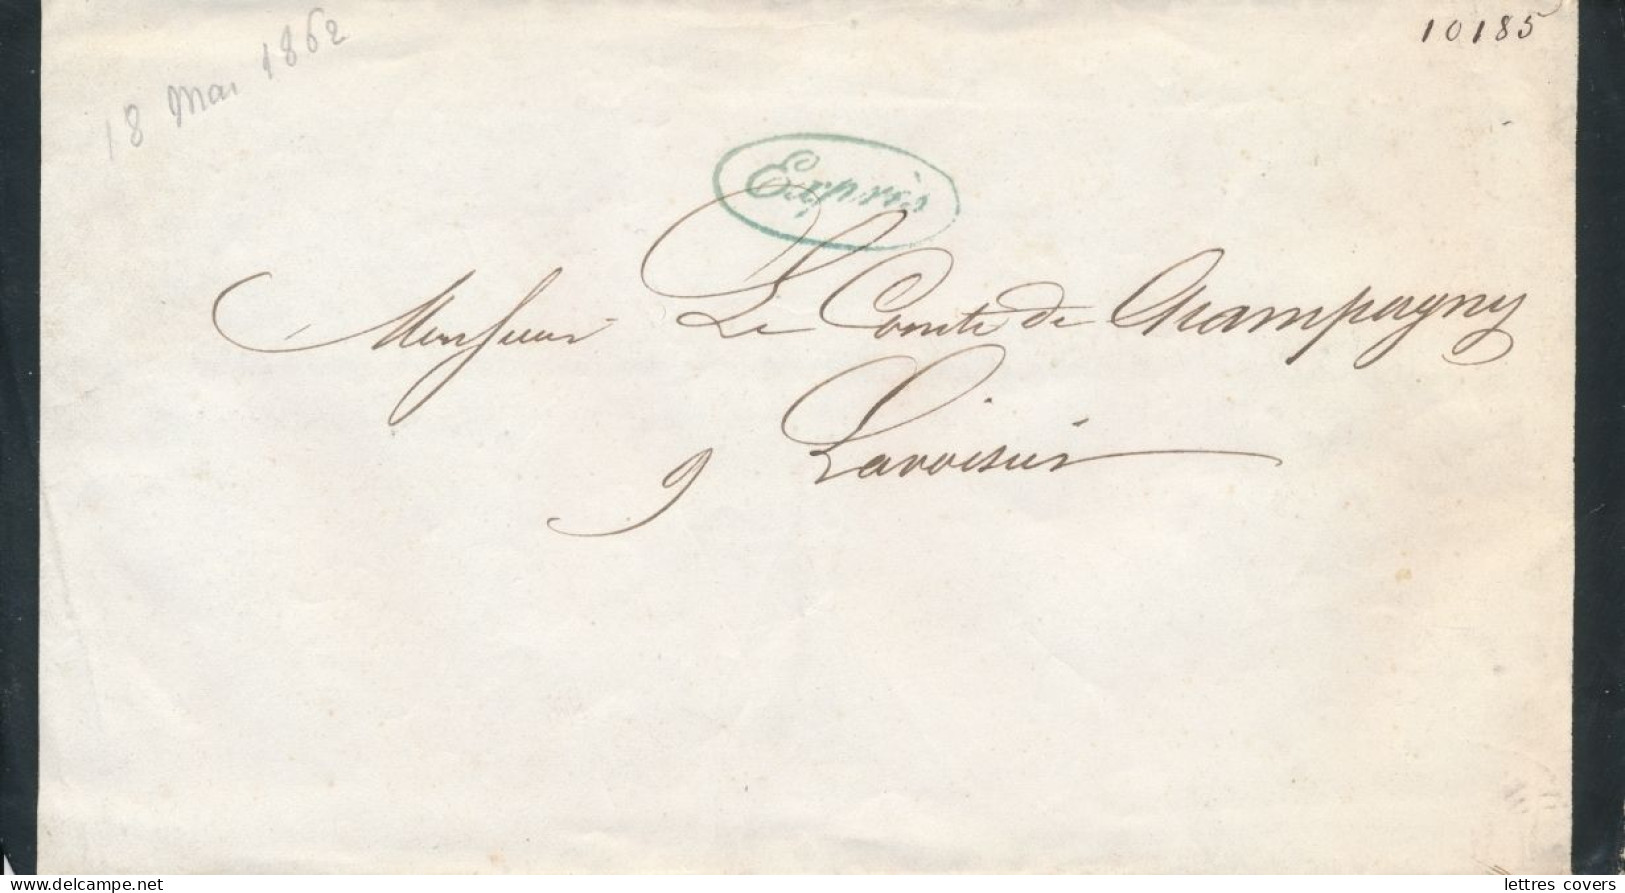 18 Mai 1862
10185
Exprès
Monsieur Le Comte de Champagny
9 Lavoisier
lettres covers